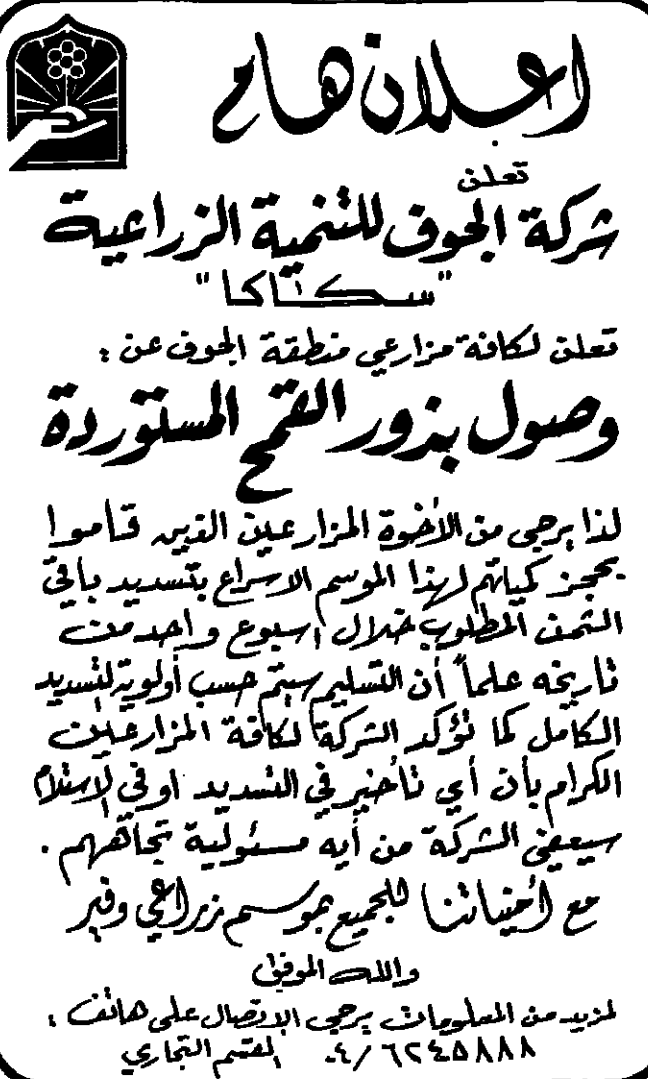 اعلان هام
تعلن
شركة الجوف للتنمية الزراعية
"سكاكا"
تعلن لكافة مزارعي منطقة الجوف عن :
وصول بذور القمح المستوردة
لذا يرجى من الأخوة المزارعين الذين قاموا
بحجز كمياتهم لهذا الموسم الاسراع بتسديد باقي
الثمن المطلوب خلال اسبوع واحد من
تاريخه علماً أن التسليم سيتم حسب أولوية التسديد
الكامل كما تؤكد الشركة لكافة المزارعين
الكرام بأن أي تأخير في التسديد او في الاستلام
سيعفي الشركة من أيه مسئولية تجاههم .
مع أمنياتنا للجميع بموسم زراعي وفير
والله الموفق
لمزيد من المعلومات يرجى الاتصال على هاتف :
٠٤/٦٢٤٥٨٨٨ القسم التجاري